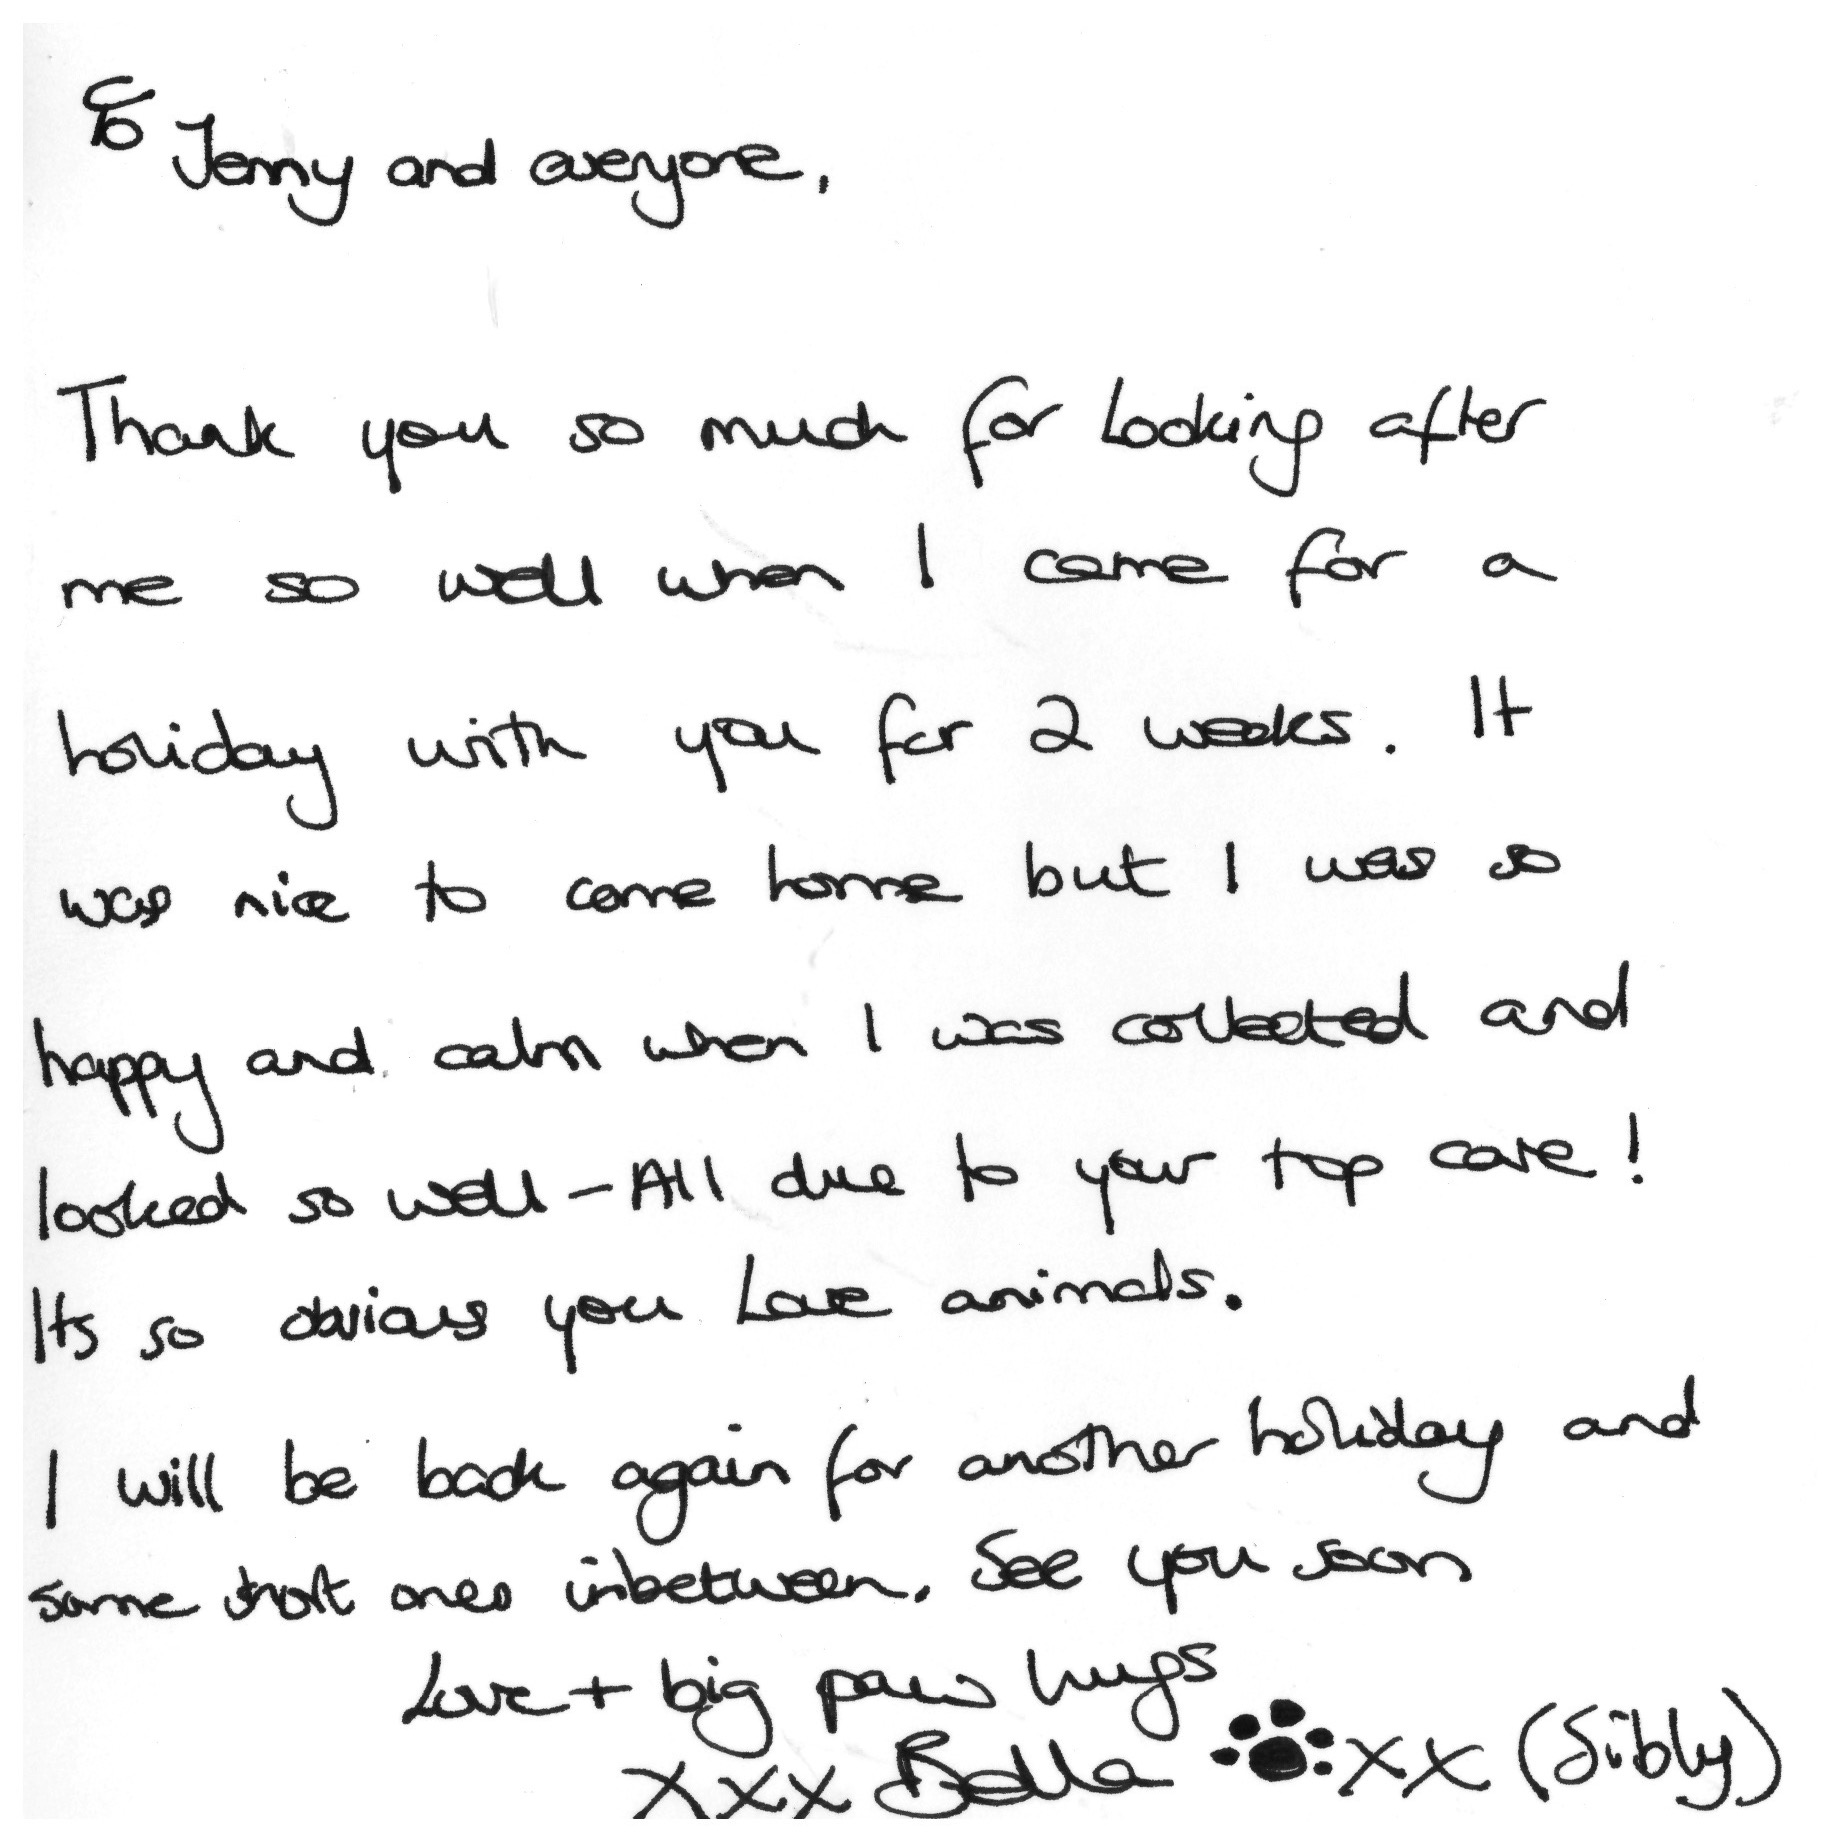 To Jenny and everyone,
Thank you so much for looking after
me so well when I came for a
holiday with you for 2 weeks. It
was nice to come home but I was so
happy and calm when I was collected and
looked so well - All due to your top care!
Its so obvious you Love animals.
I will be back again for another holiday and
some short ones inbetween. See you soon
Love + big paw hugs
xxx Bella xx (Sibly)